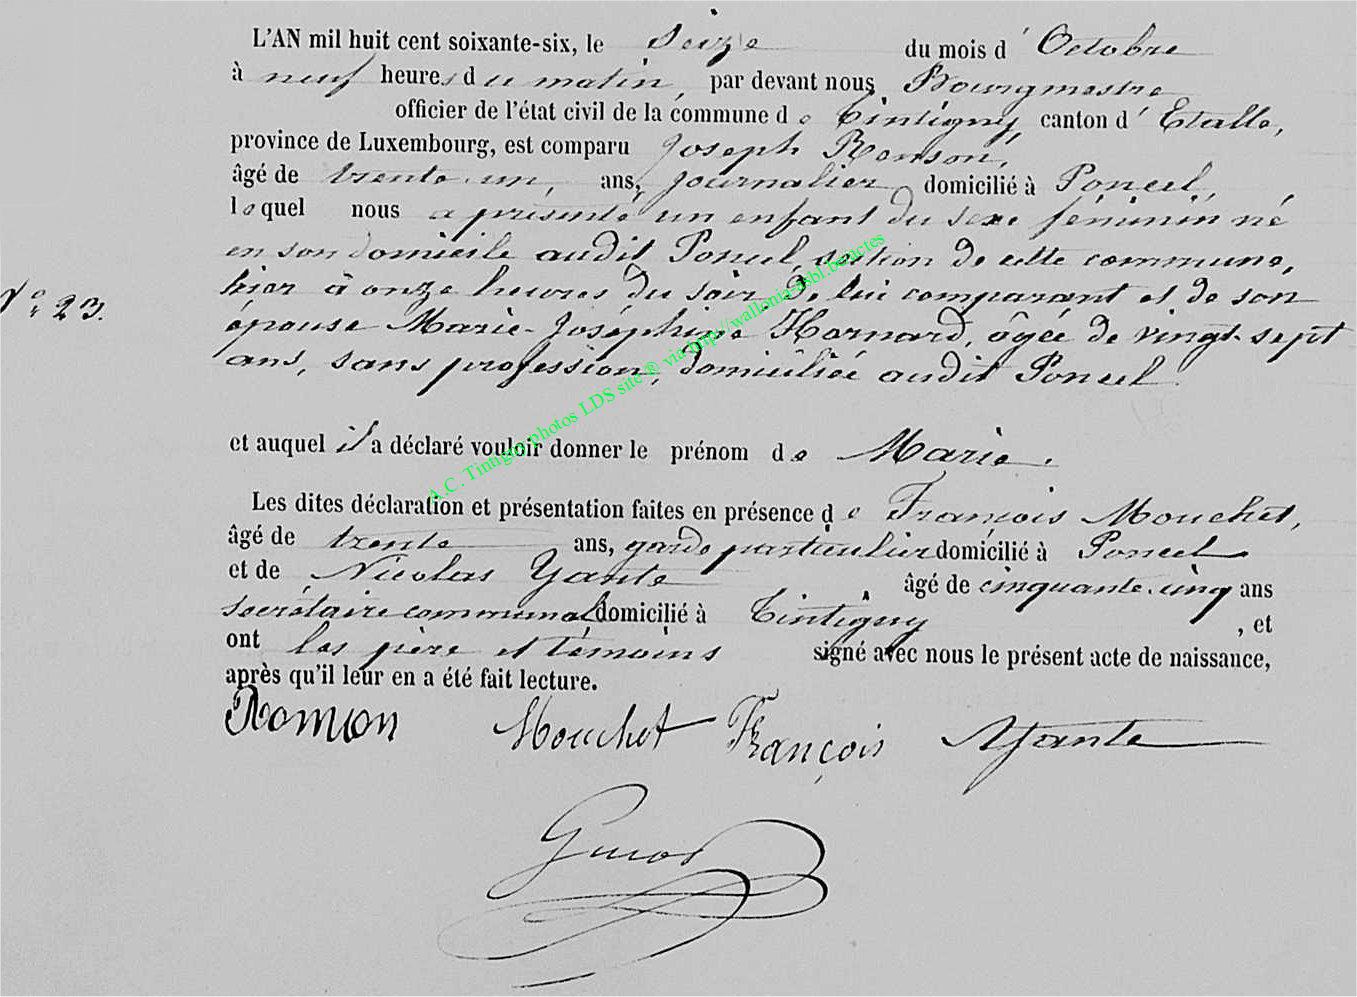 L'AN mil huit cent soixante-six, le seize du mois d'Octobre
à neuf heures du matin, par devant nous Bourgmestre
officier de l'état civil de la commune de Tintigny, canton d'Etalle,
province de Luxembourg, est comparu Joseph
âgé de trente-un, ans, journalier domicilié à Poncel,
lequel nous a présenté un enfant du sexe féminin né
en son domicile audit Poncel, section de cette commune,
hier à onze heures du soir, de lui comparant et de son
N° 23.
épouse Marie-Joséphine Hornard, âgée de vingt-sept
ans, sans profession, domiciliée audit Poncel.
et auquel il a déclaré vouloir donner le prénom de Marie.
A.C. Tintigny photos LDS site ® via http://wallonia-asbl.be/actes
Les dites déclaration et présentation faites en présence de François Mouchet,
âgé de trente ans, garde particulier domicilié à Poncel
et de Nicolas Yante âgé de cinquante-cinq ans
secrétaire communal domicilié à Tintigny, et
ont les père et témoins signé avec nous le présent acte de naissance,
après qu'il leur en a été fait lecture.
Mouchet François NYante